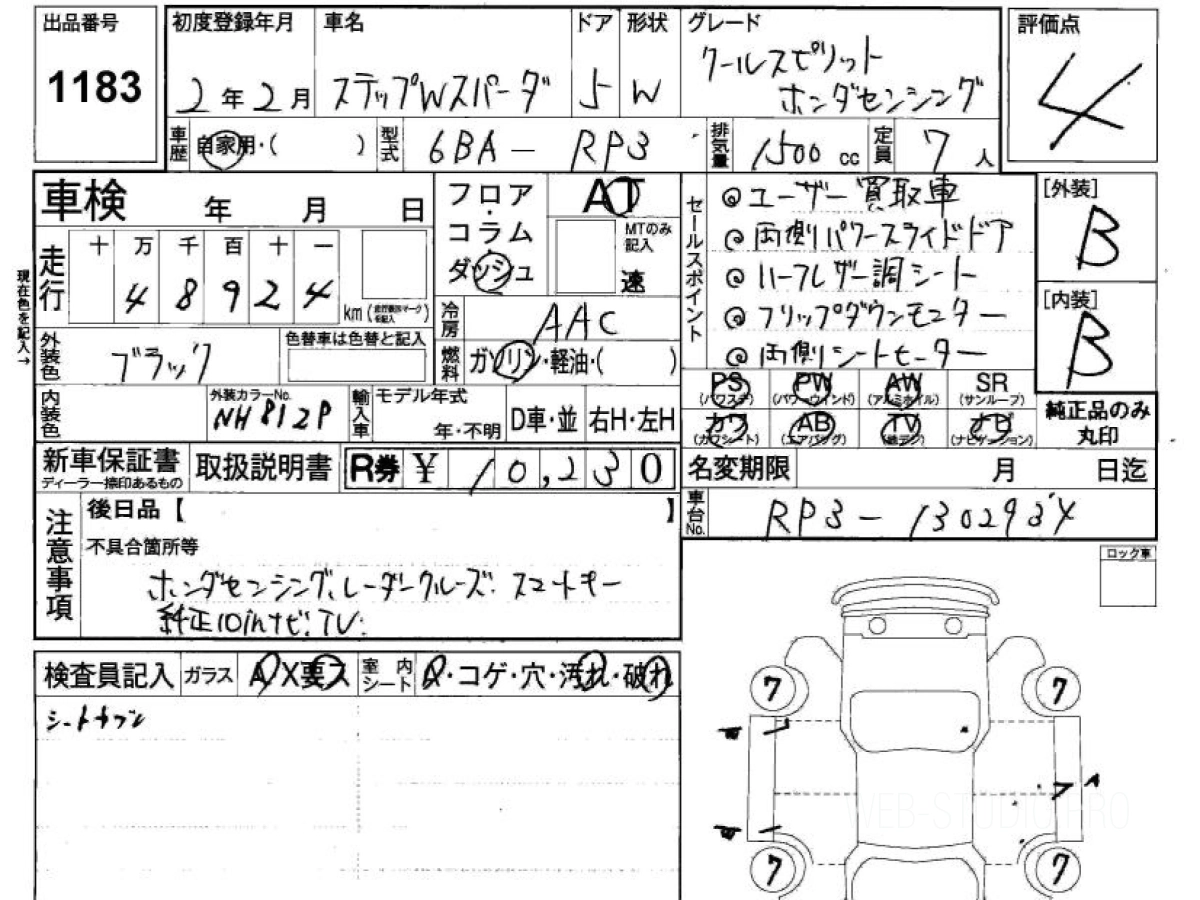 出品番号
1183
初度登録年月
2年2月
車名
ステップWスパーダ
ドア
5
形状
W
グレード
クールスピリット
ホンダセンシング
評価点
4
車歴
自家用・( )
型式
6BA - RP3
排気量
1500 cc
定員
7人
車検 年 月 日
走行
十 万 千 百 十 一
4 8 9 2 4
km
現在色を記入→
フロア
・
コラム
ダッシュ
AT
MTのみ
記入
速
冷房
AAC
燃料
ガソリン・軽油・( )
セールスポイント
◎ユーザー買取車
◎両側パワースライドドア
◎ハーフレザー調シート
◎フリップダウンモニター
◎両側シートヒーター
[外装]
B
[内装]
B
外装色
ブラック
色替車は色替と記入
内装色
外装カラーNo.
NH812P
輸入車
モデル年式
年・不明
D車・並
右H・左H
PS
(パワステ)
PW
(パワーウインド)
AW
(アルミホイル)
SR
(サンルーフ)
カワ
(カワシート)
AB
(エアバッグ)
TV
(地デジ)
ナビ
(ナビゲーション)
純正品のみ
丸印
新車保証書
ディーラー捺印あるもの
取扱説明書
R券 ¥ 10,230
名変期限 月 日迄
車台No.
RP3-1302934
注意事項
後日品【 】
不具合箇所等
ホンダセンシング、レーダークルーズ、スマートキー
純正10inナビ、TV、
ロック車
検査員記入
ガラス
A X 要ス
室内
シート
A・コゲ・穴・汚れ・破れ
7
7
A
7
7
WEB-STUDIO PRO